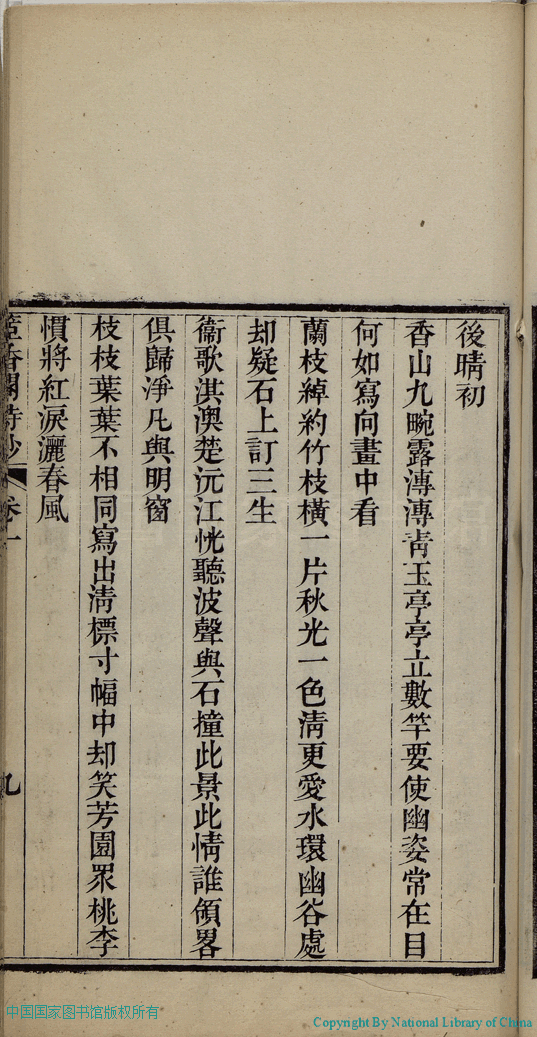 後晴初
香山九畹露漙漙青玉亭亭立數竿要使幽姿常在目
何如寫向畫中看
蘭枝綽約竹枝橫一片秋光一色清更愛水環幽谷處
却疑石上訂三生
衞歌淇澳楚沅江恍聽波聲與石撞此景此情誰領畧
俱歸淨几與明窗
枝枝葉葉不相同寫出清標寸幅中却笑芳園眾桃李
慣將紅淚灑春風
香閣詩鈔 卷一 九
中国国家图书馆版权所有
Copyright By National Library of China